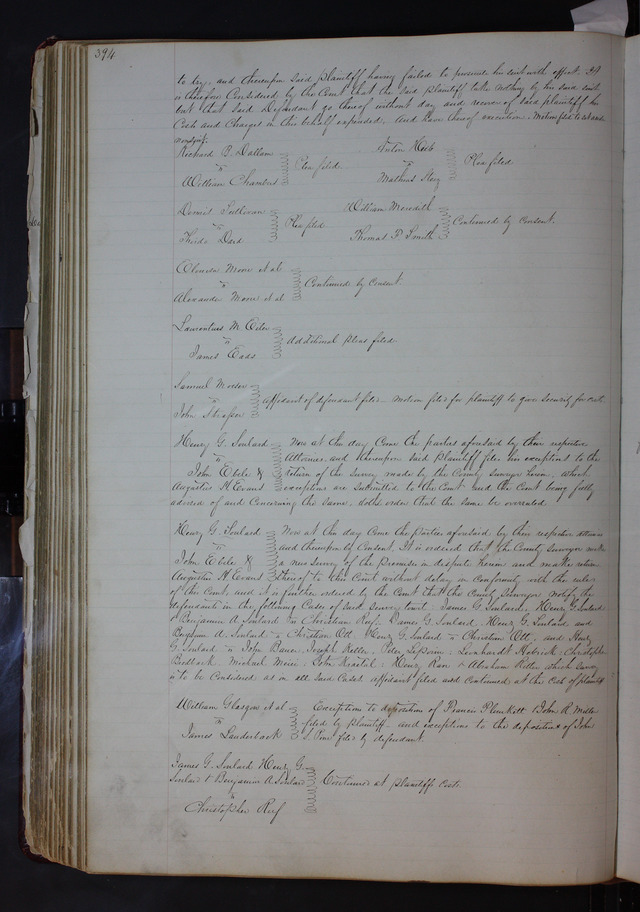 394
to try, and thereupon said plaintiff having failed to prosecute his suit with effect. It
is therefore Considered by the Court that the said plaintiff take nothing by his said suit
but that said Defendant go thereof without day and recover of said plaintiff his
Costs and Charges in this behalf expended. And have thereof execution. Motion filed to set aside
nonsuit.
Richard B. Dallam
vs
William Chambers
Plea filed
Anton
vs
Mathias
Plea filed
Dennis Sullivan
vs
Plea filed
William Meredith
vs
Thomas P. Smith
Continued by Consent.
Moore et al
vs
Alexander Moore et al
Continued by Consent
Laurentius M. Eiler
vs
James Eads
additional pleas filed
Samuel
vs
John
affidavit of defendant filed motion filed for plaintiff to give security for cost
Henry G. Soulard
vs
John Ebele &
Augustus H Evans
Now at this day Come the parties aforesaid by their respective
Attornies, and thereupon said plaintiff files his exceptions to the
return of the Survey made by the County Surveyor herein, which
exceptions are submitted to the Court and the Court being fully
advised of and Concerning the same, doth order that the same be overruled
Henry G. Soulard
vs
John Ebele &
Augustus H Evans
Now at this day Come the Parties aforesaid by their respective attornies
and thereupon by Consent, It is ordered that the County Surveyor make
a new Survey of the Premises in dispute herein and make return
thereof to this Court without delay in Conformity with the rules
of this Court, and it is further ordered by the Court that the County Surveyor notify the
defendants in the following Cases of said Survey to wit: James G. Soulard, Henry G. Soulard
& Benjamin A. Soulard vs Christian Ruf. James G. Soulard, Henry G. Soulard and
Benjamin A. Soulard vs Christian Ott. Henry G. Soulard vs Christian Ott. and Henry
G. Soulard vs John Bauer, Joseph Keller, Peter Lepsoin, Leonhardt Christopher
Michael Meier, John Henry Rau & Abraham Ritter, which Survey
is to be Considered as in all said Cases. affidavit filed and Continued at the Cost of plaintiff
William Glasgow et al
vs
James Lauderback
Exceptions to deposition of Francis Plunkitt & John R. Mills
filed by Plaintiff and exceptions to the deposition of John
S. filed by defendant.
James G. Soulard Henry G.
Soulard & Benjamin A. Soulard
vs
Christopher Ruf
Continued at plaintiffs Costs.